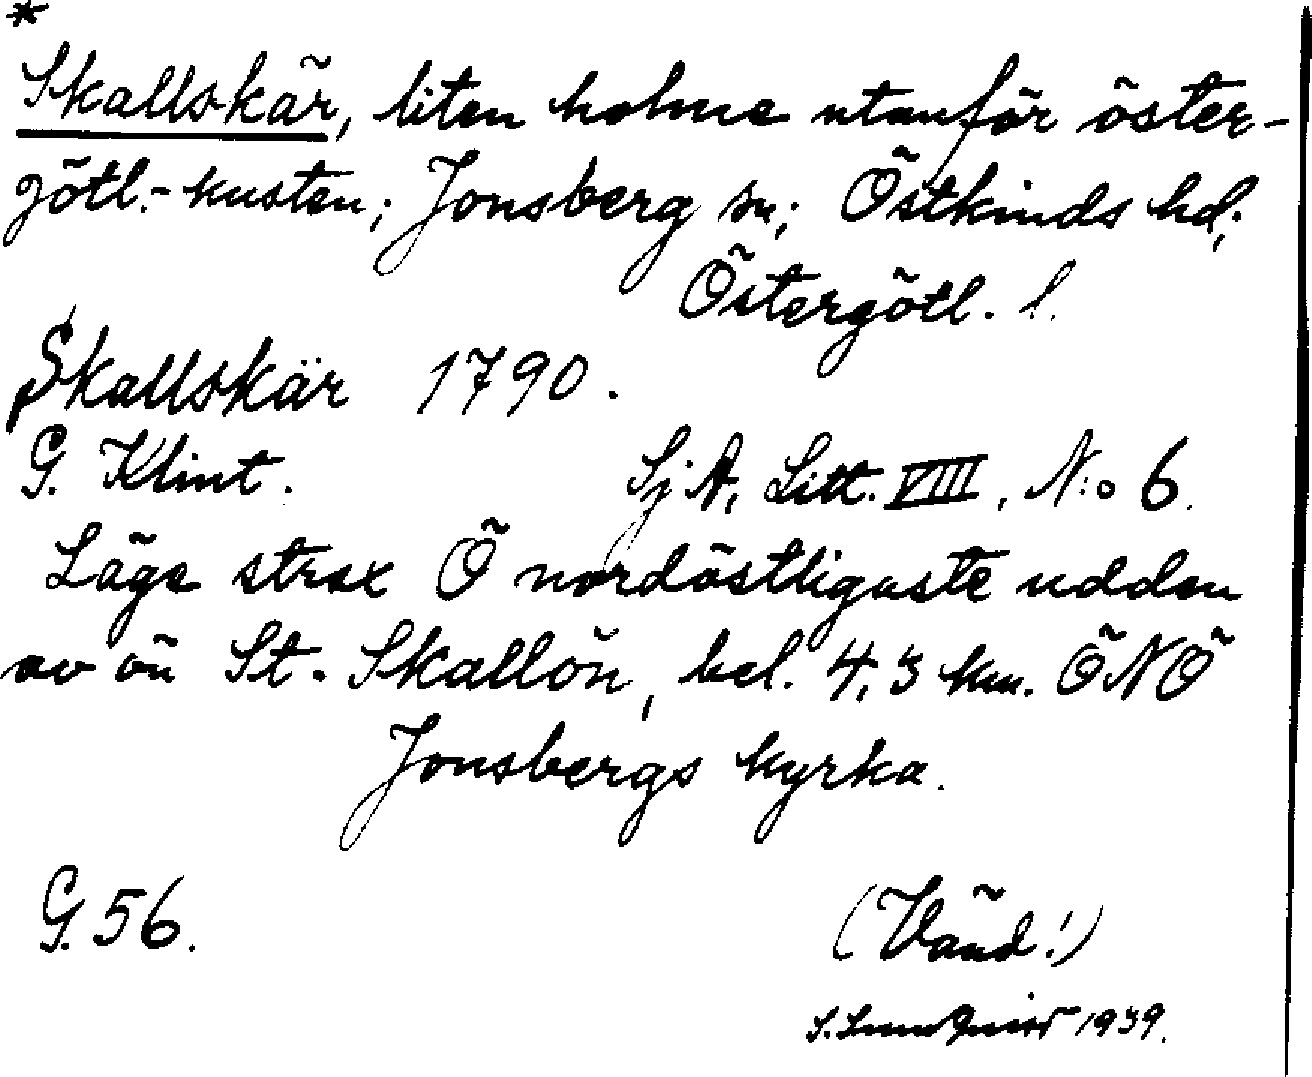 *
Skallskär, liten holme utanför öster-
götl.-kusten; Jonsberg sn; Östkinds hd;
Östergötl. l.
Skallskär 1790.
G. Klint. SjA, Litt. VIII, N:o 6.
Läge strax Ö nordöstligaste udden
av ön St. Skallön, bel. 4,3 km. ÖNÖ
Jonsbergs kyrka.
G. 56. (Vänd!)
S. 1939.